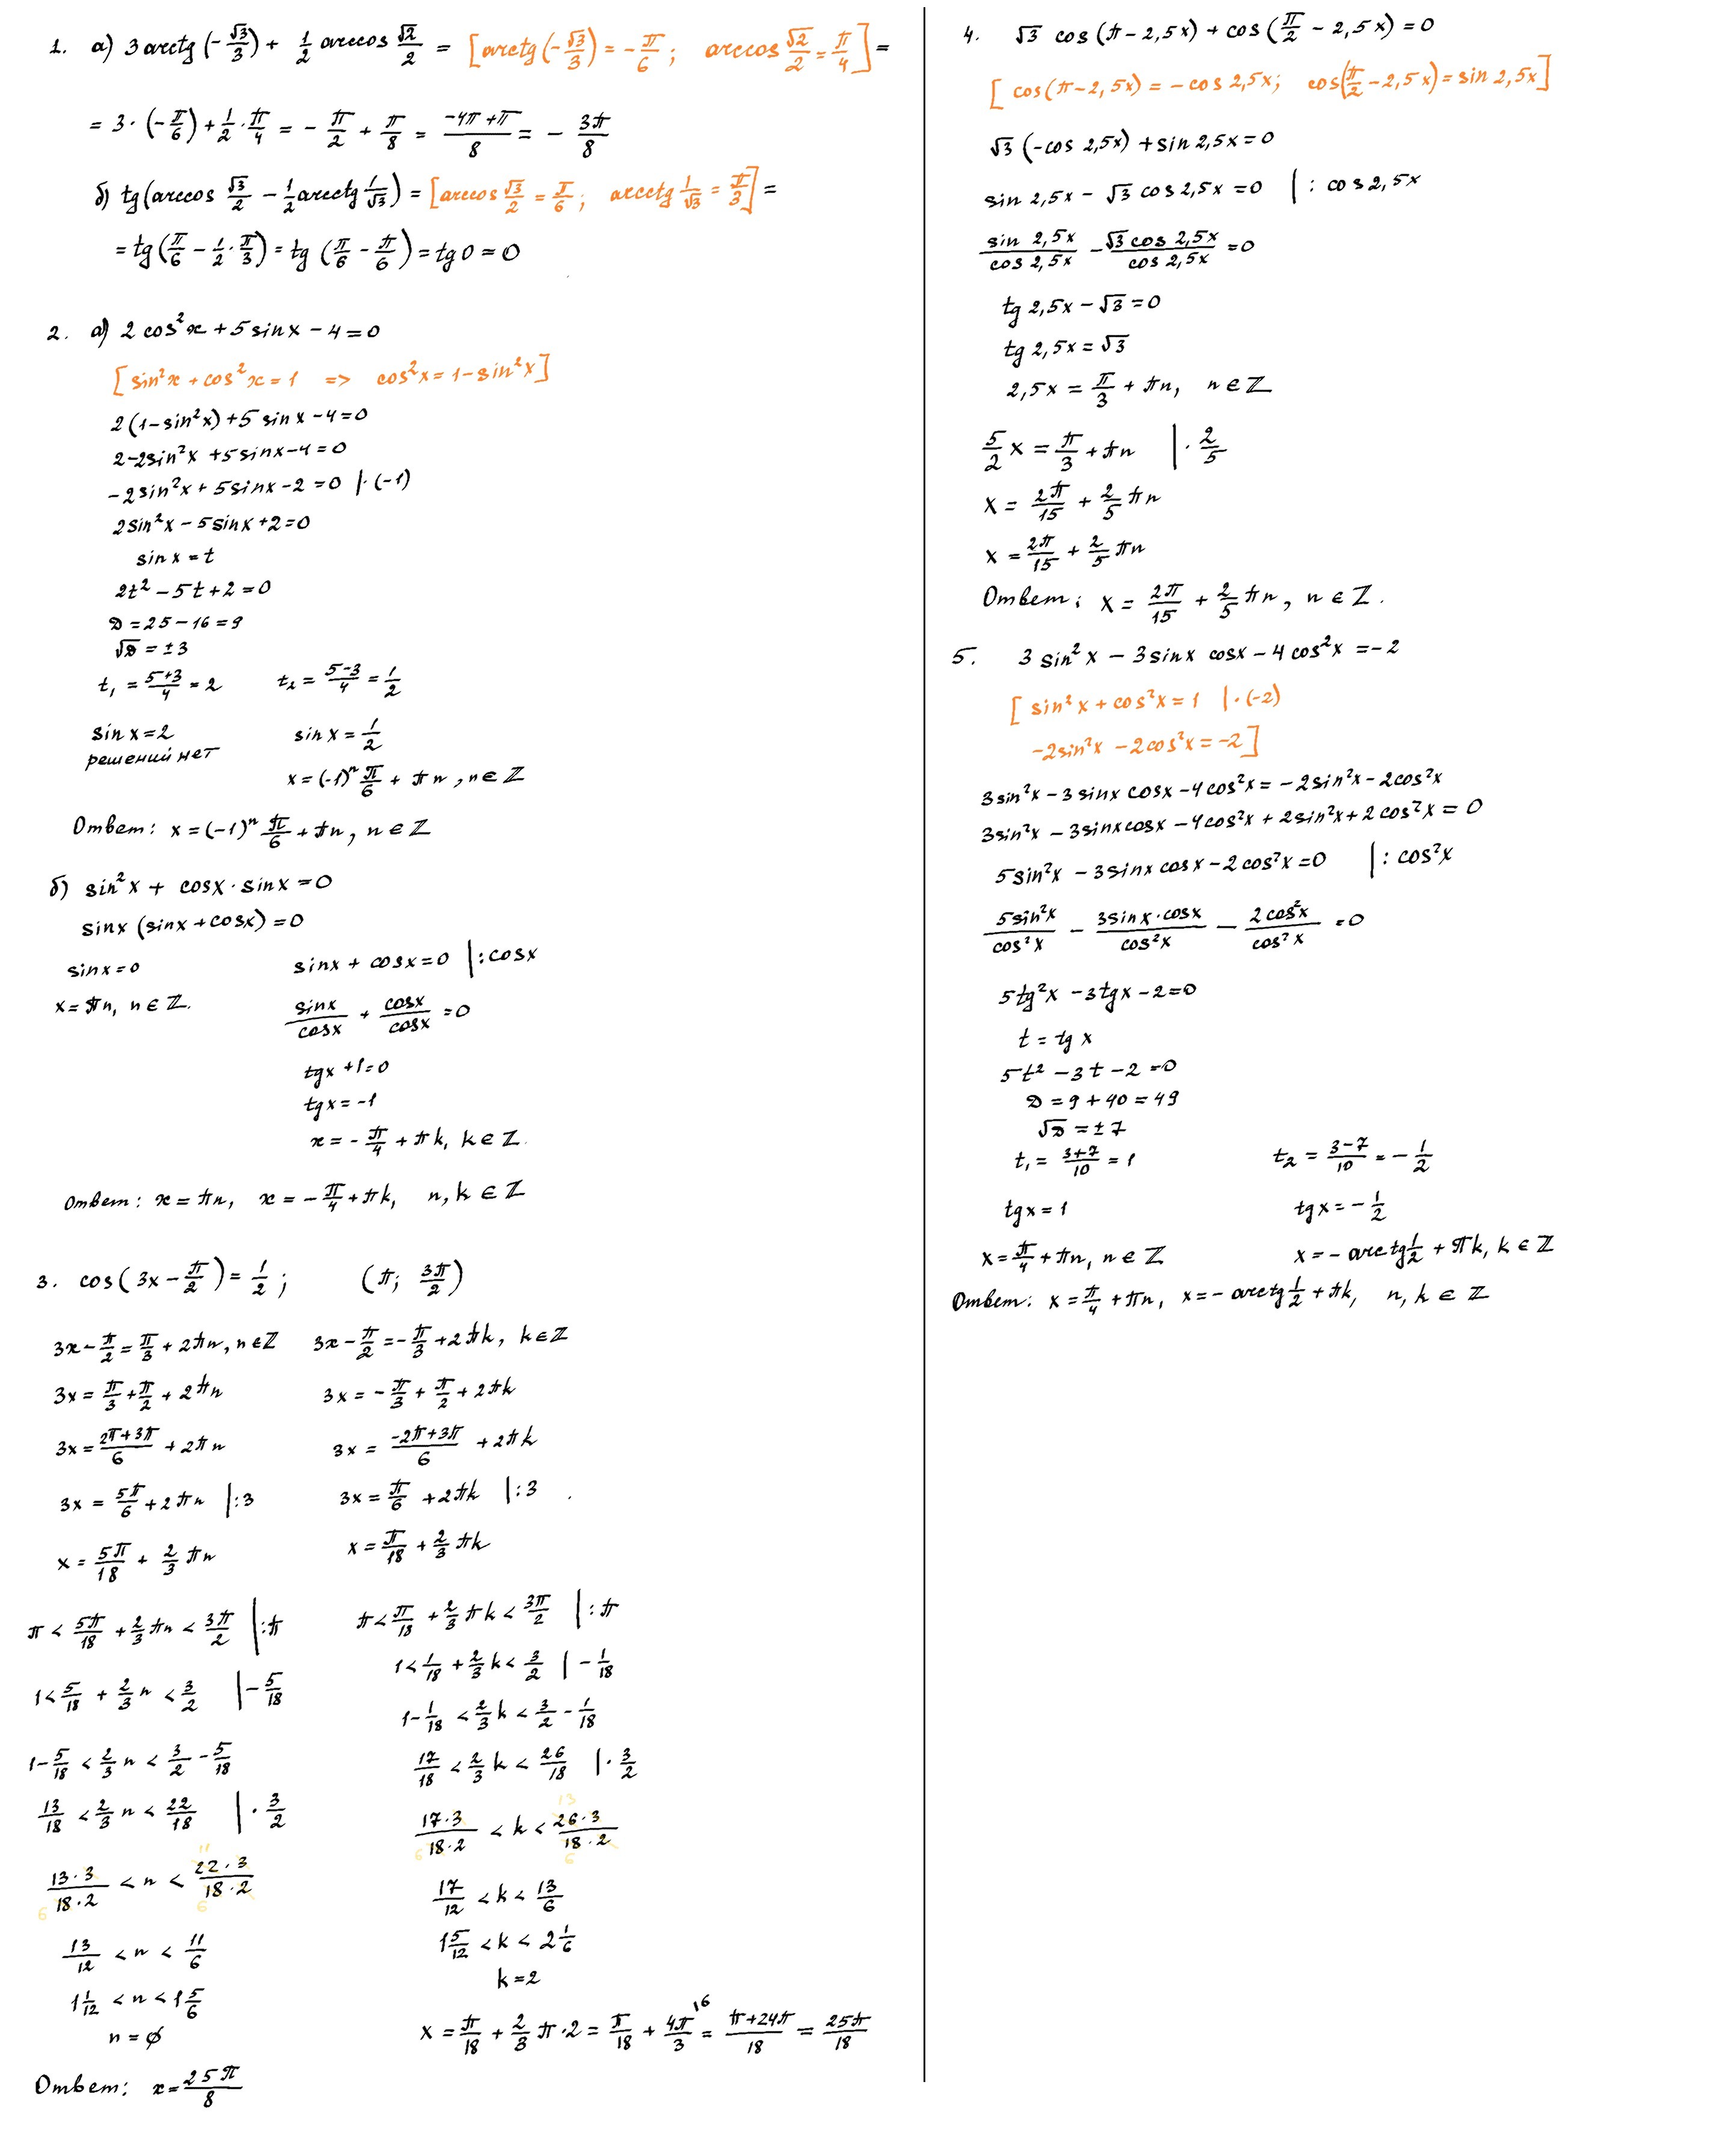 1. а) 3 arctg (-√3/3) + 1/2 arccos √2/2 = [arctg(-√3/3) = -π/6; arccos √2/2 = π/4] =
= 3·(-π/6) + 1/2·π/4 = -π/2 + π/8 = (-4π+π)/8 = -3π/8
б) tg(arccos √3/2 - 1/2 arcctg 1/√3) = [arccos √3/2 = π/6; arcctg 1/√3 = π/3] =
= tg(π/6 - 1/2·π/3) = tg(π/6 - π/6) = tg 0 = 0
2. а) 2 cos²x + 5 sin x - 4 = 0
[sin²x + cos²x = 1 => cos²x = 1 - sin²x]
2(1-sin²x) + 5 sin x - 4 = 0
2-2sin²x + 5sinx - 4 = 0
-2sin²x + 5sinx - 2 = 0 |·(-1)
2sin²x - 5sinx + 2 = 0
sin x = t
2t² - 5t + 2 = 0
D = 25 - 16 = 9
√D = ±3
t₁ = (5+3)/4 = 2 t₂ = (5-3)/4 = 1/2
sin x = 2 sin x = 1/2
решений нет
x = (-1)ⁿ π/6 + πn, n ∈ ℤ
Ответ: x = (-1)ⁿ π/6 + πn, n ∈ ℤ
б) sin²x + cosx·sinx = 0
sinx (sinx + cosx) = 0
sinx = 0 sinx + cosx = 0 |:cosx
x = πn, n ∈ ℤ. sinx/cosx + cosx/cosx = 0
tgx + 1 = 0
tgx = -1
x = -π/4 + πk, k ∈ ℤ.
Ответ: x = πn, x = -π/4 + πk, n, k ∈ ℤ
3. cos(3x - π/2) = 1/2; (π; 3π/2)
3x - π/2 = π/3 + 2πn, n ∈ ℤ 3x - π/2 = -π/3 + 2πk, k ∈ ℤ
3x = π/3 + π/2 + 2πn 3x = -π/3 + π/2 + 2πk
3x = (2π+3π)/6 + 2πn 3x = (-2π+3π)/6 + 2πk
3x = 5π/6 + 2πn |:3 3x = π/6 + 2πk |:3
x = 5π/18 + 2/3 πn x = π/18 + 2/3 πk
π < 5π/18 + 2/3 πn < 3π/2 |:π π < π/18 + 2/3 πk < 3π/2 |:π
1 < 5/18 + 2/3 n < 3/2 |-5/18 1 < 1/18 + 2/3 k < 3/2 |-1/18
1 - 5/18 < 2/3 n < 3/2 - 5/18 1 - 1/18 < 2/3 k < 3/2 - 1/18
13/18 < 2/3 n < 22/18 |·3/2 17/18 < 2/3 k < 26/18 |·3/2
13·3/18·2 < n < 22·3/18·2 17·3/18·2 < k < 26·3/18·2
6 11 6 6 13 6
13/12 < n < 11/6 17/12 < k < 13/6
1 1/12 < n < 1 5/6 1 5/12 < k < 2 1/6
n = ∅ k = 2
x = π/18 + 2/3 π·2 = π/18 + 4π/3 ¹⁶ = (π+24π)/18 = 25π/18
Ответ: x = 25π/8
4. √3 cos(π - 2,5x) + cos(π/2 - 2,5x) = 0
[cos(π-2,5x) = -cos 2,5x; cos(π/2 - 2,5x) = sin 2,5x]
√3 (-cos 2,5x) + sin 2,5x = 0
sin 2,5x - √3 cos 2,5x = 0 |: cos 2,5x
sin 2,5x/cos 2,5x - √3 cos 2,5x/cos 2,5x = 0
tg 2,5x - √3 = 0
tg 2,5x = √3
2,5x = π/3 + πn, n ∈ ℤ
5/2 x = π/3 + πn |·2/5
x = 2π/15 + 2/5 πn
x = 2π/15 + 2/5 πn
Ответ: x = 2π/15 + 2/5 πn, n ∈ ℤ.
5. 3 sin²x - 3 sinx cosx - 4 cos²x = -2
[sin²x + cos²x = 1 |·(-2)
-2sin²x - 2cos²x = -2]
3sin²x - 3 sinx cosx - 4cos²x = -2sin²x - 2cos²x
3sin²x - 3sinxcosx - 4cos²x + 2sin²x + 2cos²x = 0
5sin²x - 3sinx cosx - 2cos²x = 0 |: cos²x
5sin²x/cos²x - 3sinx·cosx/cos²x - 2cos²x/cos²x = 0
5tg²x - 3tgx - 2 = 0
t = tg x
5t² - 3t - 2 = 0
D = 9 + 40 = 49
√D = ±7
t₁ = (3+7)/10 = 1 t₂ = (3-7)/10 = -1/2
tgx = 1 tgx = -1/2
x = π/4 + πn, n ∈ ℤ x = -arctg 1/2 + πk, k ∈ ℤ
Ответ: x = π/4 + πn, x = -arctg 1/2 + πk, n, k ∈ ℤ